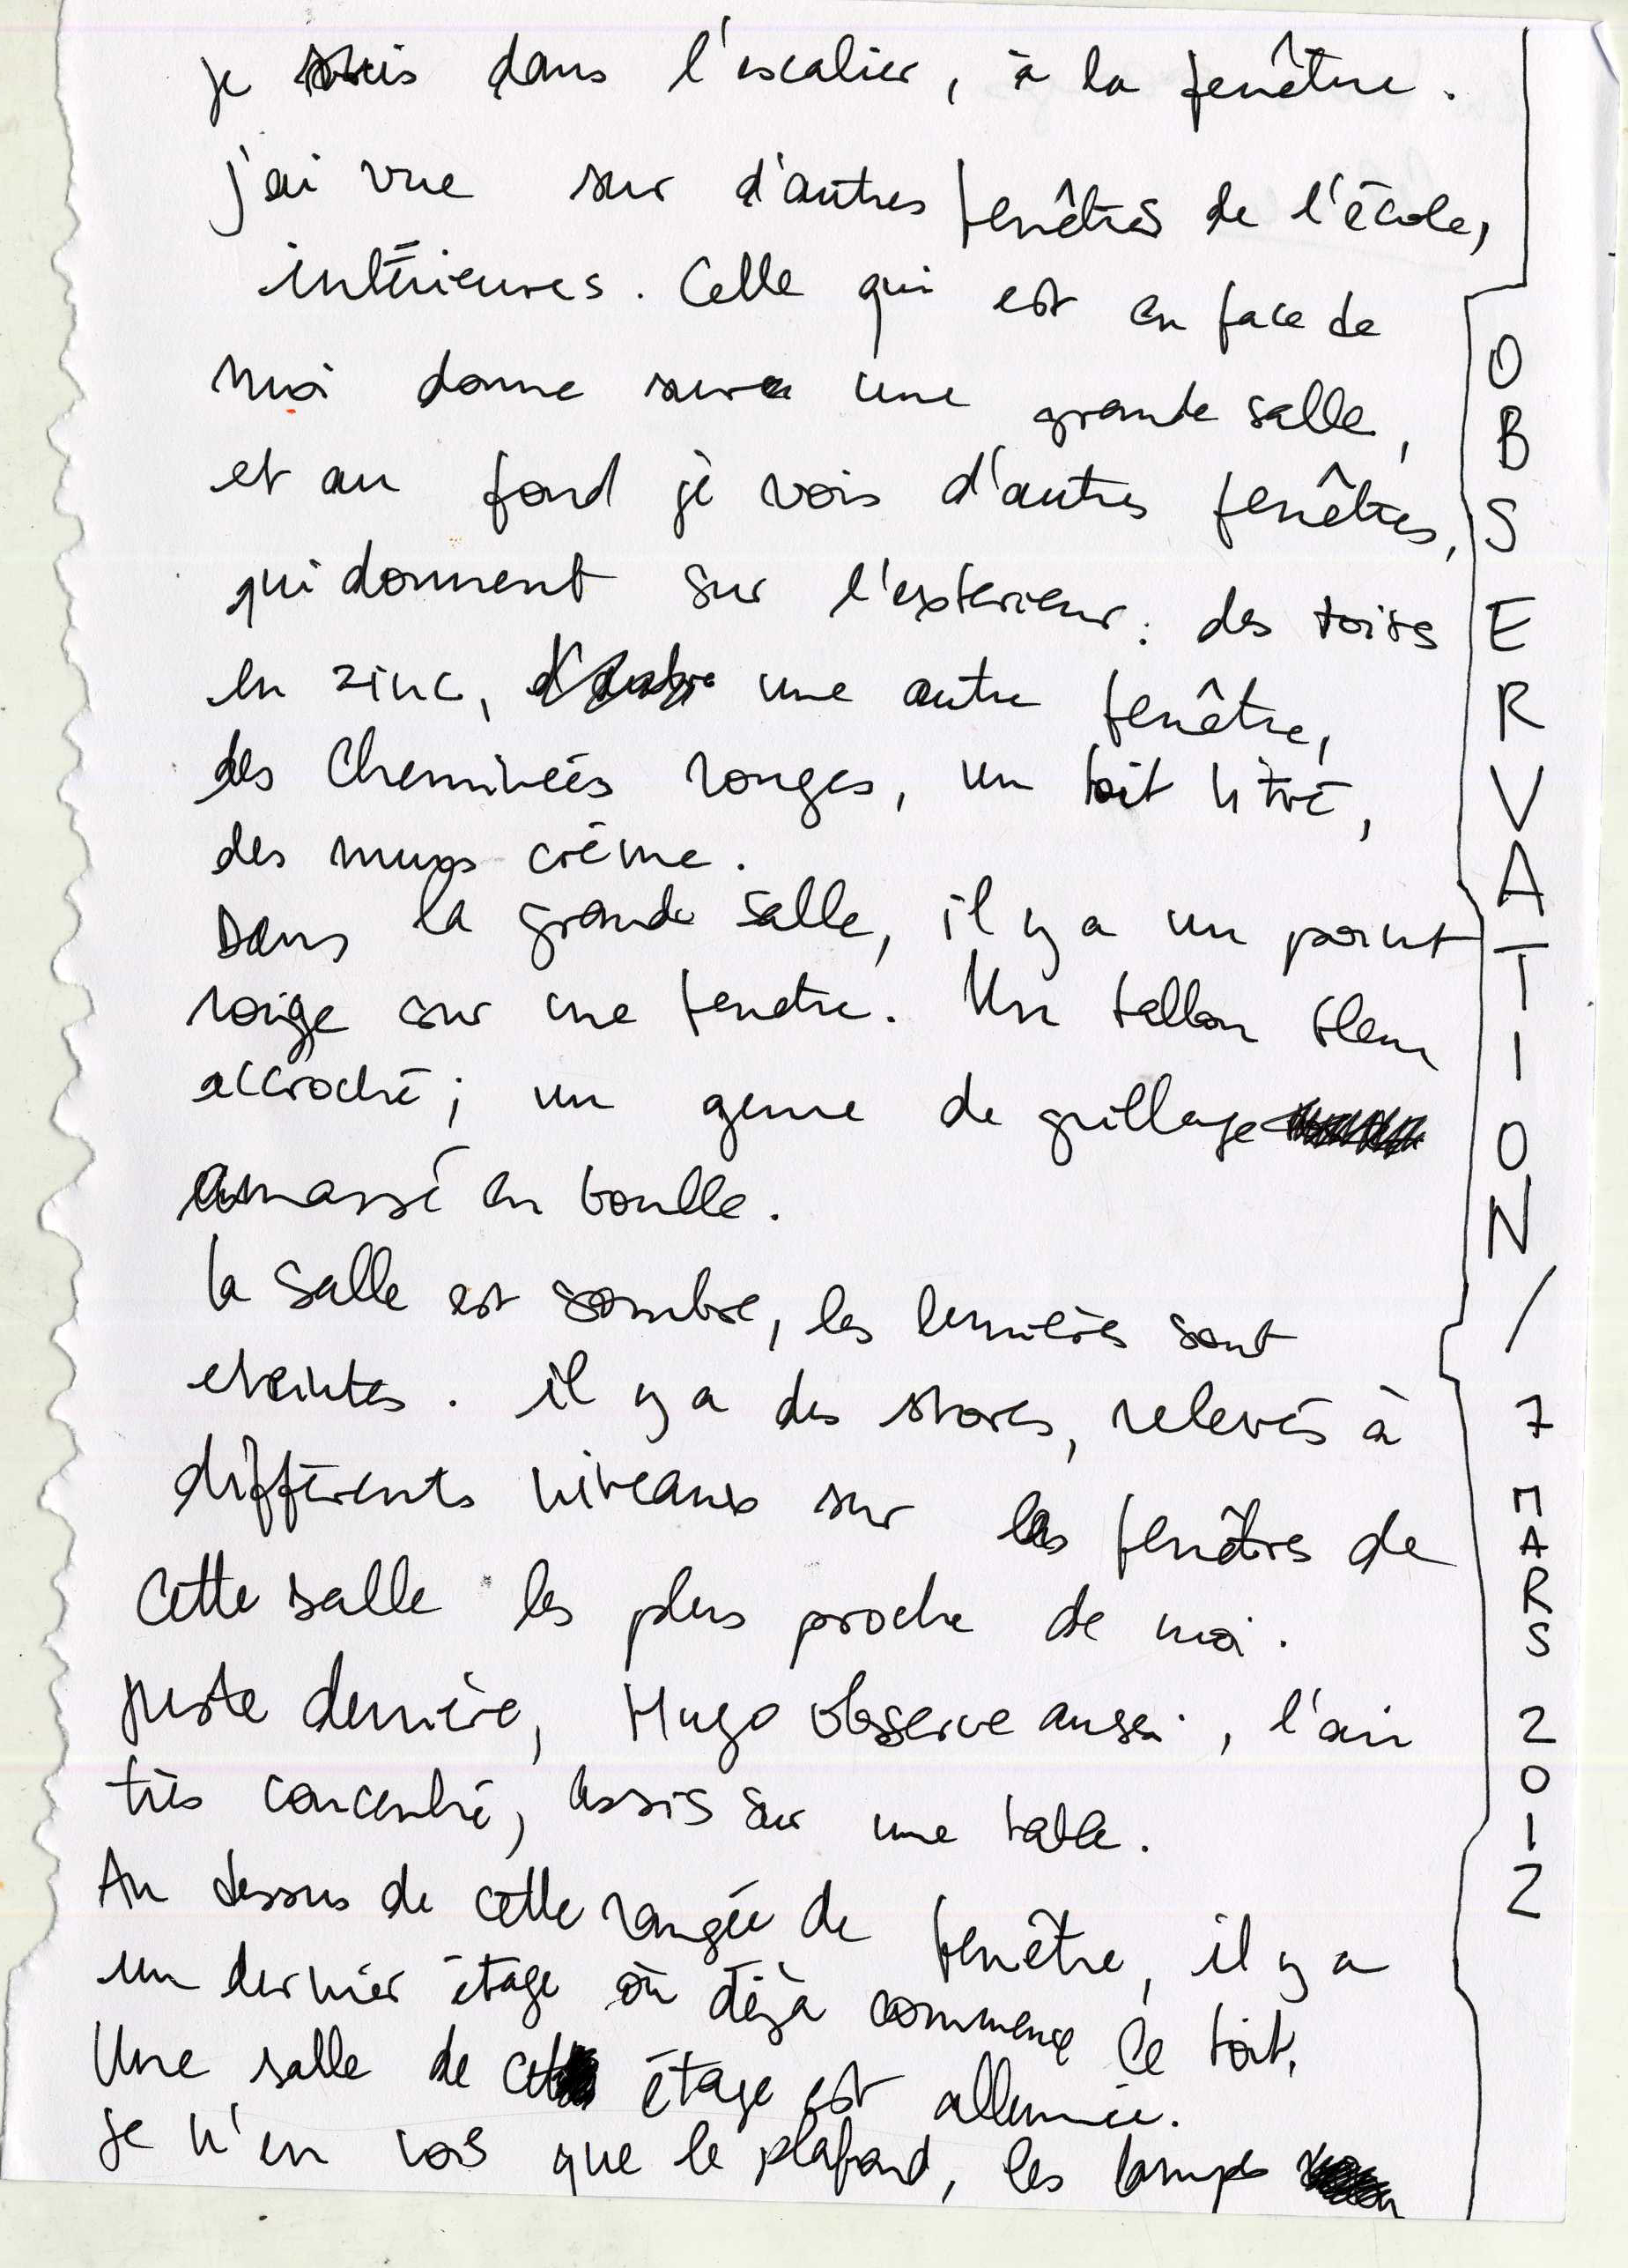 je suis dans l'escalier, à la fenêtre.
j'ai vue sur d'autres fenêtres de l'école,
intérieures. Celle qui est en face de
moi donne sur une grande salle,
et au fond je vois d'autres fenêtres,
qui donnent sur l'exterieur : des toits
en zinc, une autre fenêtre,
des cheminées rouges, un toit vitré,
des murs crème.
Dans la grande salle, il y a un point
roige sur une fenetre. Un ballon bleu
accroché ; un genre de grillage
amassé en boulle.
la salle est sombre, les lumières sont
eteintes. il y a des stores, relevés à
différents niveaux sur les fenêtres de
cette salle les plus proche de moi.
juste derrière, Hugo observe aussi, l'air
très concentré, assis sur une table.
Au dessus de cette rangée de fenêtre, il y a
un dernier étage où déjà commence le toit.
Une salle de cet étage est allumée.
je n'en vois que le plafond, les lampes
OBSERVATION / 7 MARS 2012